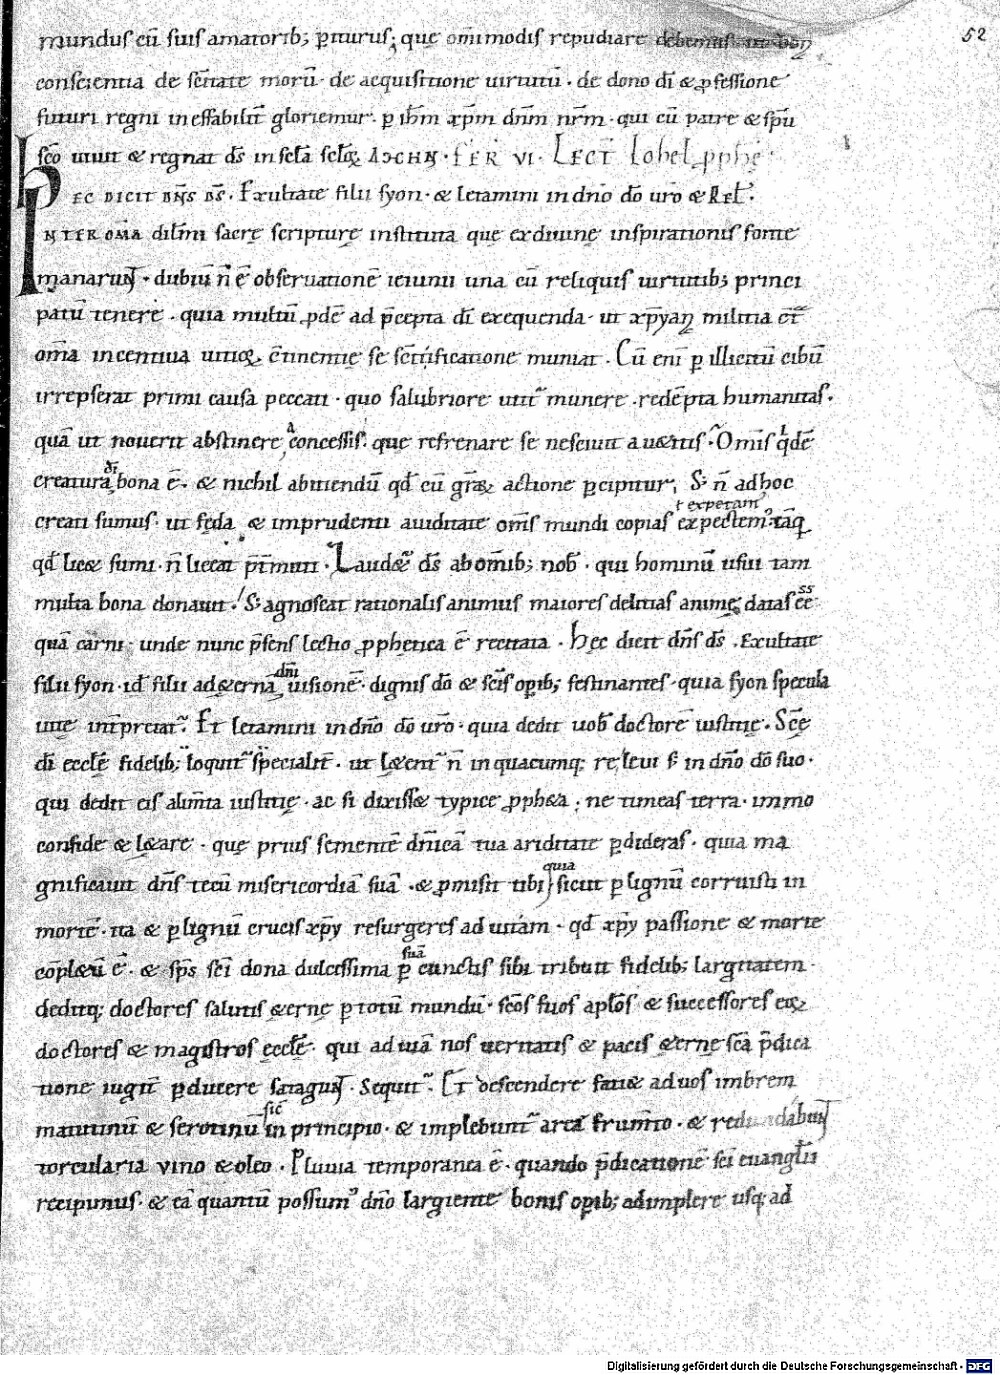 mundus cū suis amatorib; ꝑiturus; quę om̅imodis repudiare debemus in bon 52
conscientia de sc̅itate morū · de acquisitione uirtutū · de dono dī & ꝓfessione
futuri regni ineffabilit̅ gloriemur · ꝑ ihm̅ xp̅m dn̅m nr̅m · qui cū patre & sp̅u
sc̅o uiuit & regnat ds̅ in sc̅la sc̅loꝝ FER VI · LECT Iohel ꝓphę
HEC DICIT DN̅S DS̅ · Exultate filii syon · & letamini in dn̅o dō uro̅ & REL̅ ·
INTER OM̅A dil̅mi sacrę scripturę instituta quę ex diuinę inspirationis fonte
manarunt · dubiū n̅ ē obseruationē ieiunii una cū reliquis uirtutib; princi
patū tenere · quia multū ꝓdē ad p̅cepta dī exequenda · ut xp̅yanꝫ militia ct̅
om̅a incentiua uitioꝝ ctinentię se sc̅ificatione muniat · Cū eni̅ ꝑ illicitū cibū
irrepserat primi causa peccati · quo salubriore utit̅ munere · redēpta humanitas ·
quā ut nouerit abstinere a concessis · quę refrenare se nesciuit a uetitis · Om̅is qͥdē
creatura dī bona ē · & nichil abiciendū qd̅ cū gr̅aꝝ actione ꝑcipitur; S; n̅ ad hoc
creati sumus · ut fęda & imprudenti auiditate om̅s mundi copias expectem; tāq̅
ł expetam;
qd̅ lic& sumi · n̅ liceat p̅t̅mitti · Laudet̅ ds̅ ab om̅ib; nob̅ · qui hominū usui tam
multa bona donauit · S; agnoscat rationalis animus maiores delitias animę datas ēē
quā carni · unde nunc p̅sens lectio ꝓphetica ē recitata · Hęc dicit dn̅s ds̅ · Exultate
filii syon · id̅ filii ad &ernā dn̅i uisionē · dignis dō & sc̅is oꝑib; festinantes · quia syon specula
tiue int̅pretat̅ · Et letamini in dn̅o dō uro̅ · quia dedit uob̅ doctorē iustitię · Sc̅ę
dī eccl̅ę fidelib; loquit̅ specialit̅ · ut l&ent̅ n̅ in quacumq; re leui s; in dn̅o dō suo ·
qui dedit eis alim̅ta iustitię · ac si dixiss& typice ꝓph&a; ne timeas terra · immo
confide & l&are · quę prius sementē dn̅icā tua ariditate ꝑdideras · quia ma
gnificauit dn̅s tecū misericordiā suā · & ꝓmisit tibi quia sicut ꝑ lignū corruisti in
mortē · ita & ꝑ lignū crucis xp̅y resurgeres ad uitam · qd̅ xp̅y passione & morte
cōpl&ū ē · & sp̅s sc̅i dona dulcissima ꝑ suā cunctis sibi tribuit fidelib; largitatem ·
deditq; doctores salutis &ernę ꝑ totū mundū · sc̅os suos apl̅os & successores eoꝝ
doctores & magistros eccl̅ę · qui ad uiā nos ueritatis & pacis &ernę sc̅a p̅dica
tione iugit̅ ꝑducere satagunt · Sequit̅ · Et descendere faci& ad uos imbrem
matutinū & serotinū sic̅ in principio · & implebunt̅ areę frum̅to · & redundabunt
torcularia vino & oleo · Pluuia temporanea ē · quando p̅dicationē sc̅i euangl̅ii
recipimus · & eā quantū possum; dn̅o largiente bonis oꝑib; adimplere usq; ad
Digitalisierung gefördert durch die Deutsche Forschungsgemeinschaft - DFG